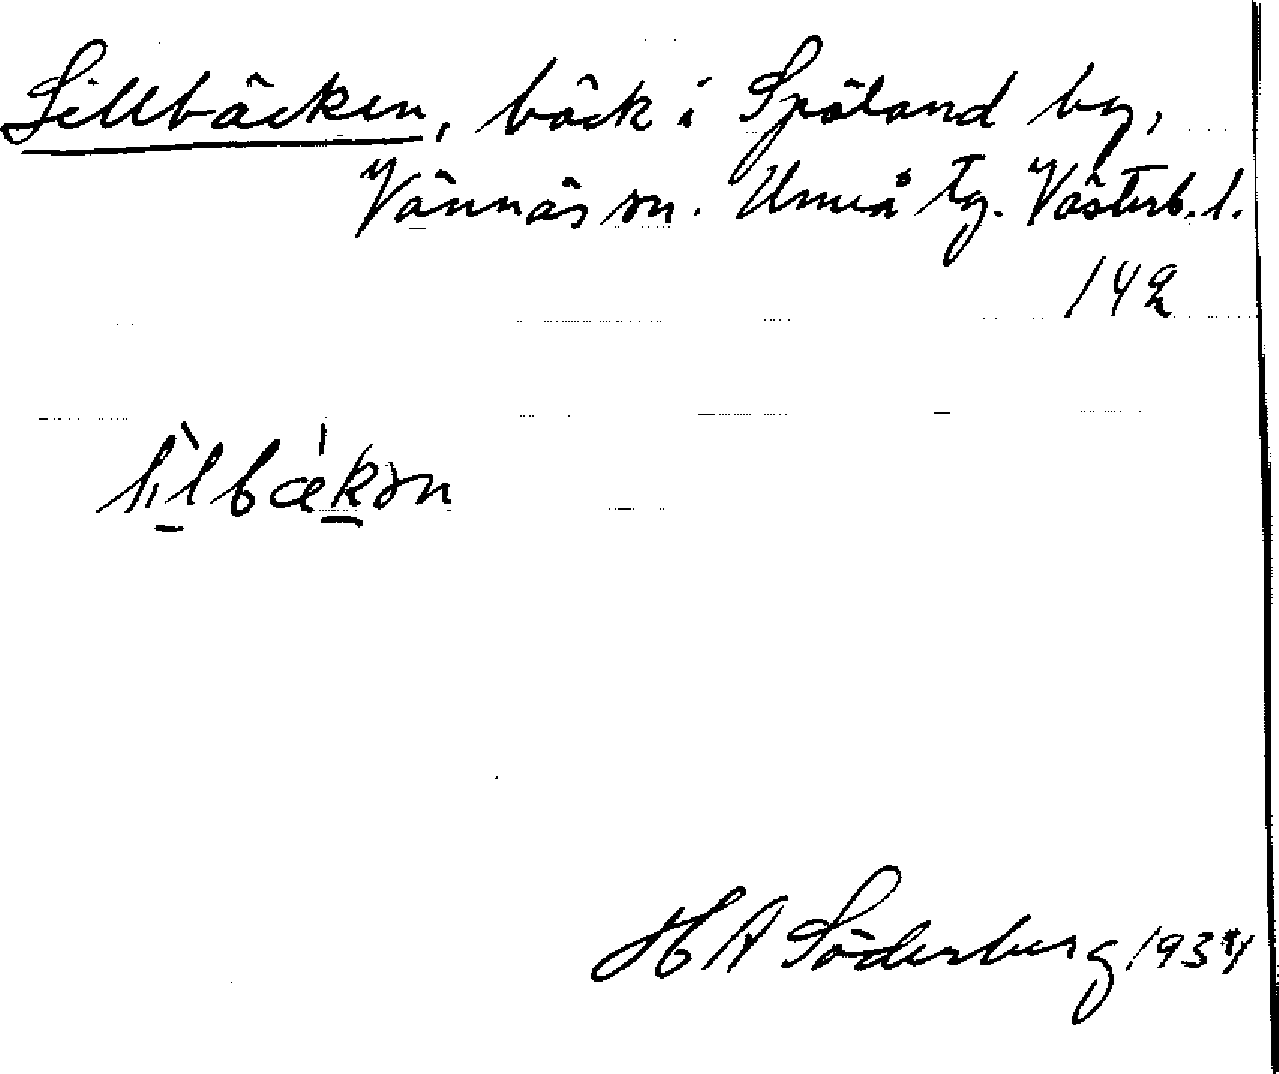 Sillbäcken, bäck i Spöland by,
Vännäs sn. Umeå tg. Västerb. l.
142
sìlbǽkən
H A Söderberg 1934